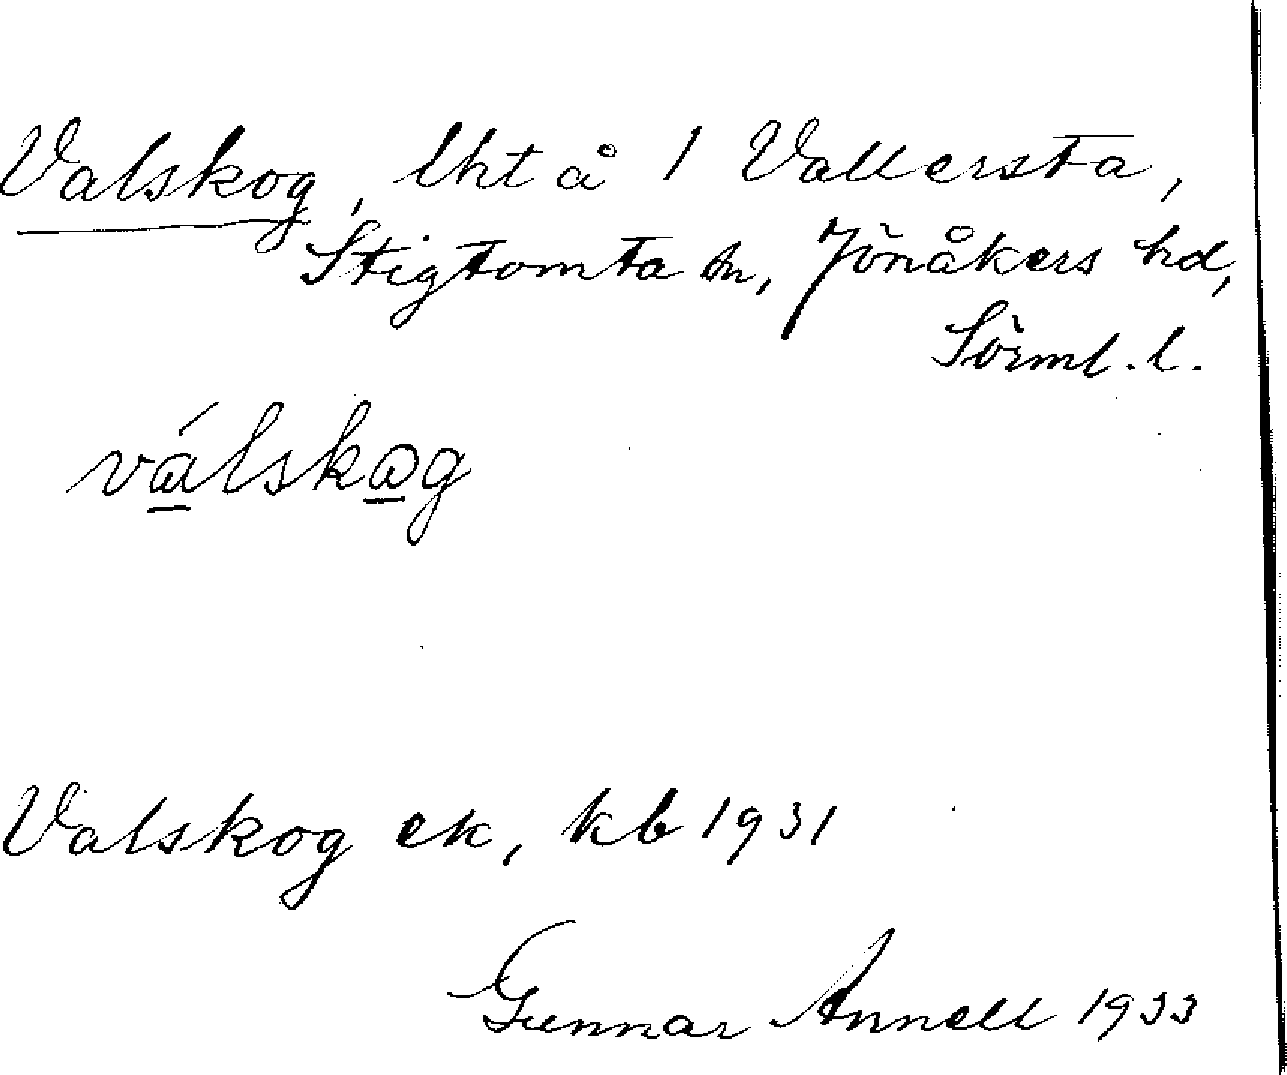 Valskog, lht å 1 Vallersta,
Stigtomta sn, Jönåkers hd,
Sörml. l.
válskog
Valskog ek, kb 1931
Gunnar Annell 1933